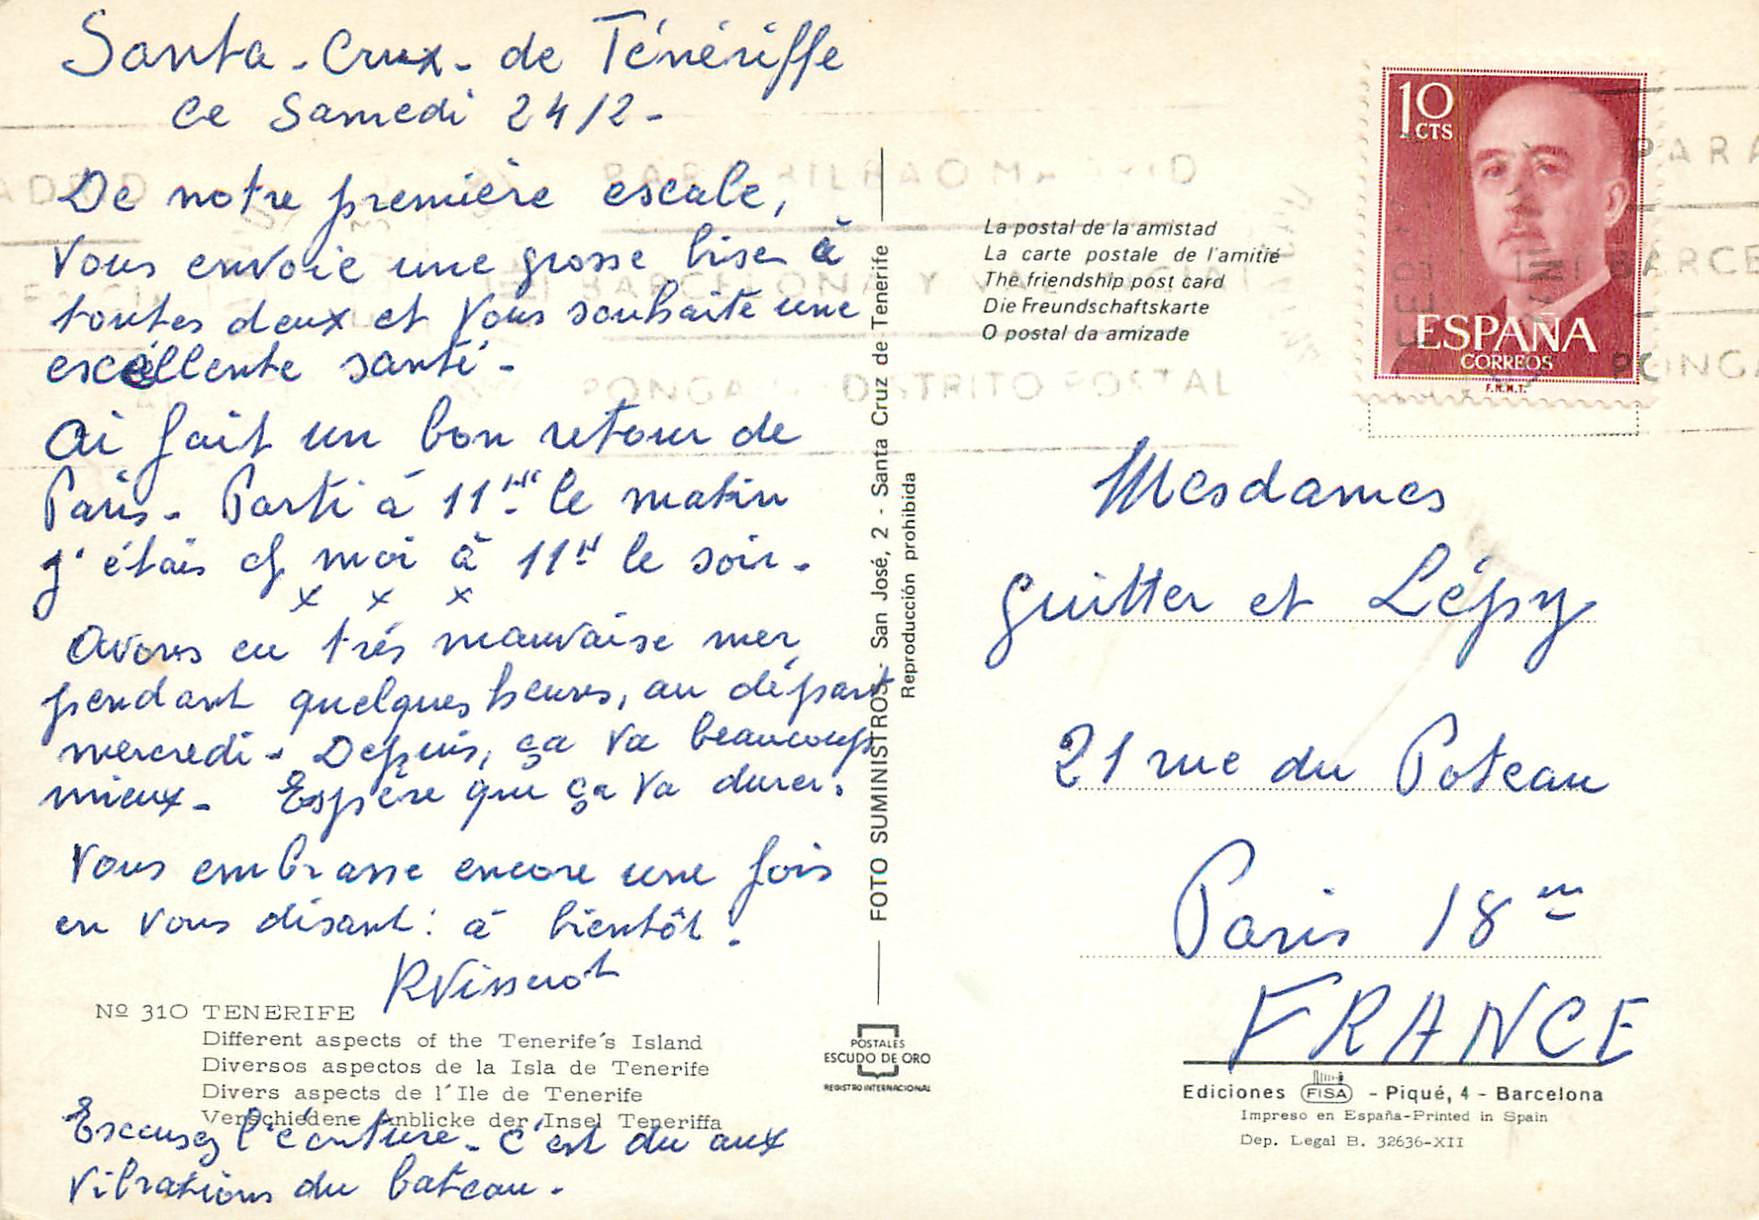 Santa-Crux-de Ténériffe
Ce Samedi 24/2-
De notre première escale,
Vous envoie une grosse bise à
toutes deux et Vous souhaite une
excéllente santé -
Ai fait un bon retour de
Paris - Parti à 11 le matin
j'étais ch moi à 11H le soir -
x x x
Avons eu très mauvaise mer
pendant quelques heures, au départ
mercredi - Depuis, ça va beaucoup
mieux - Espère que ça va durer.
Vous embrasse encore une fois
en vous disant : à bientôt.
RVisserot
Nº 310 TENERIFE
Different aspects of the Tenerife's Island
Diversos aspectos de la Isla de Tenerife
Divers aspects de l'Ile de Tenerife
Verschiedene Anblicke der Insel Teneriffa
Excusez l'écriture - C'est du aux
Vibrations du bateau -
FOTO SUMINISTROS - San José, 2 - Santa Cruz de Tenerife
Reproducción prohibida
POSTALES
ESCUDO DE ORO
REGISTRO INTERNACIONAL
La postal de la amistad
La carte postale de l'amitié
The friendship post card
Die Freundschaftskarte
O postal da amizade
10
CTS
ESPAÑA
CORREOS
F.N.M.T.
BARCELONA Y
PONGA DISTRITO POSTAL
Mesdames
Guitter et Lépsy
21 rue du Poteau
Paris 18 em
FRANCE
Ediciones FISA - Piqué, 4 - Barcelona
Impreso en España-Printed in Spain
Dep. Legal B. 32636-XII